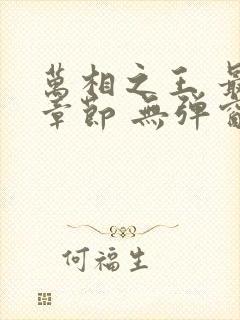 萬相之王 最
章節 無彈窗
何福生